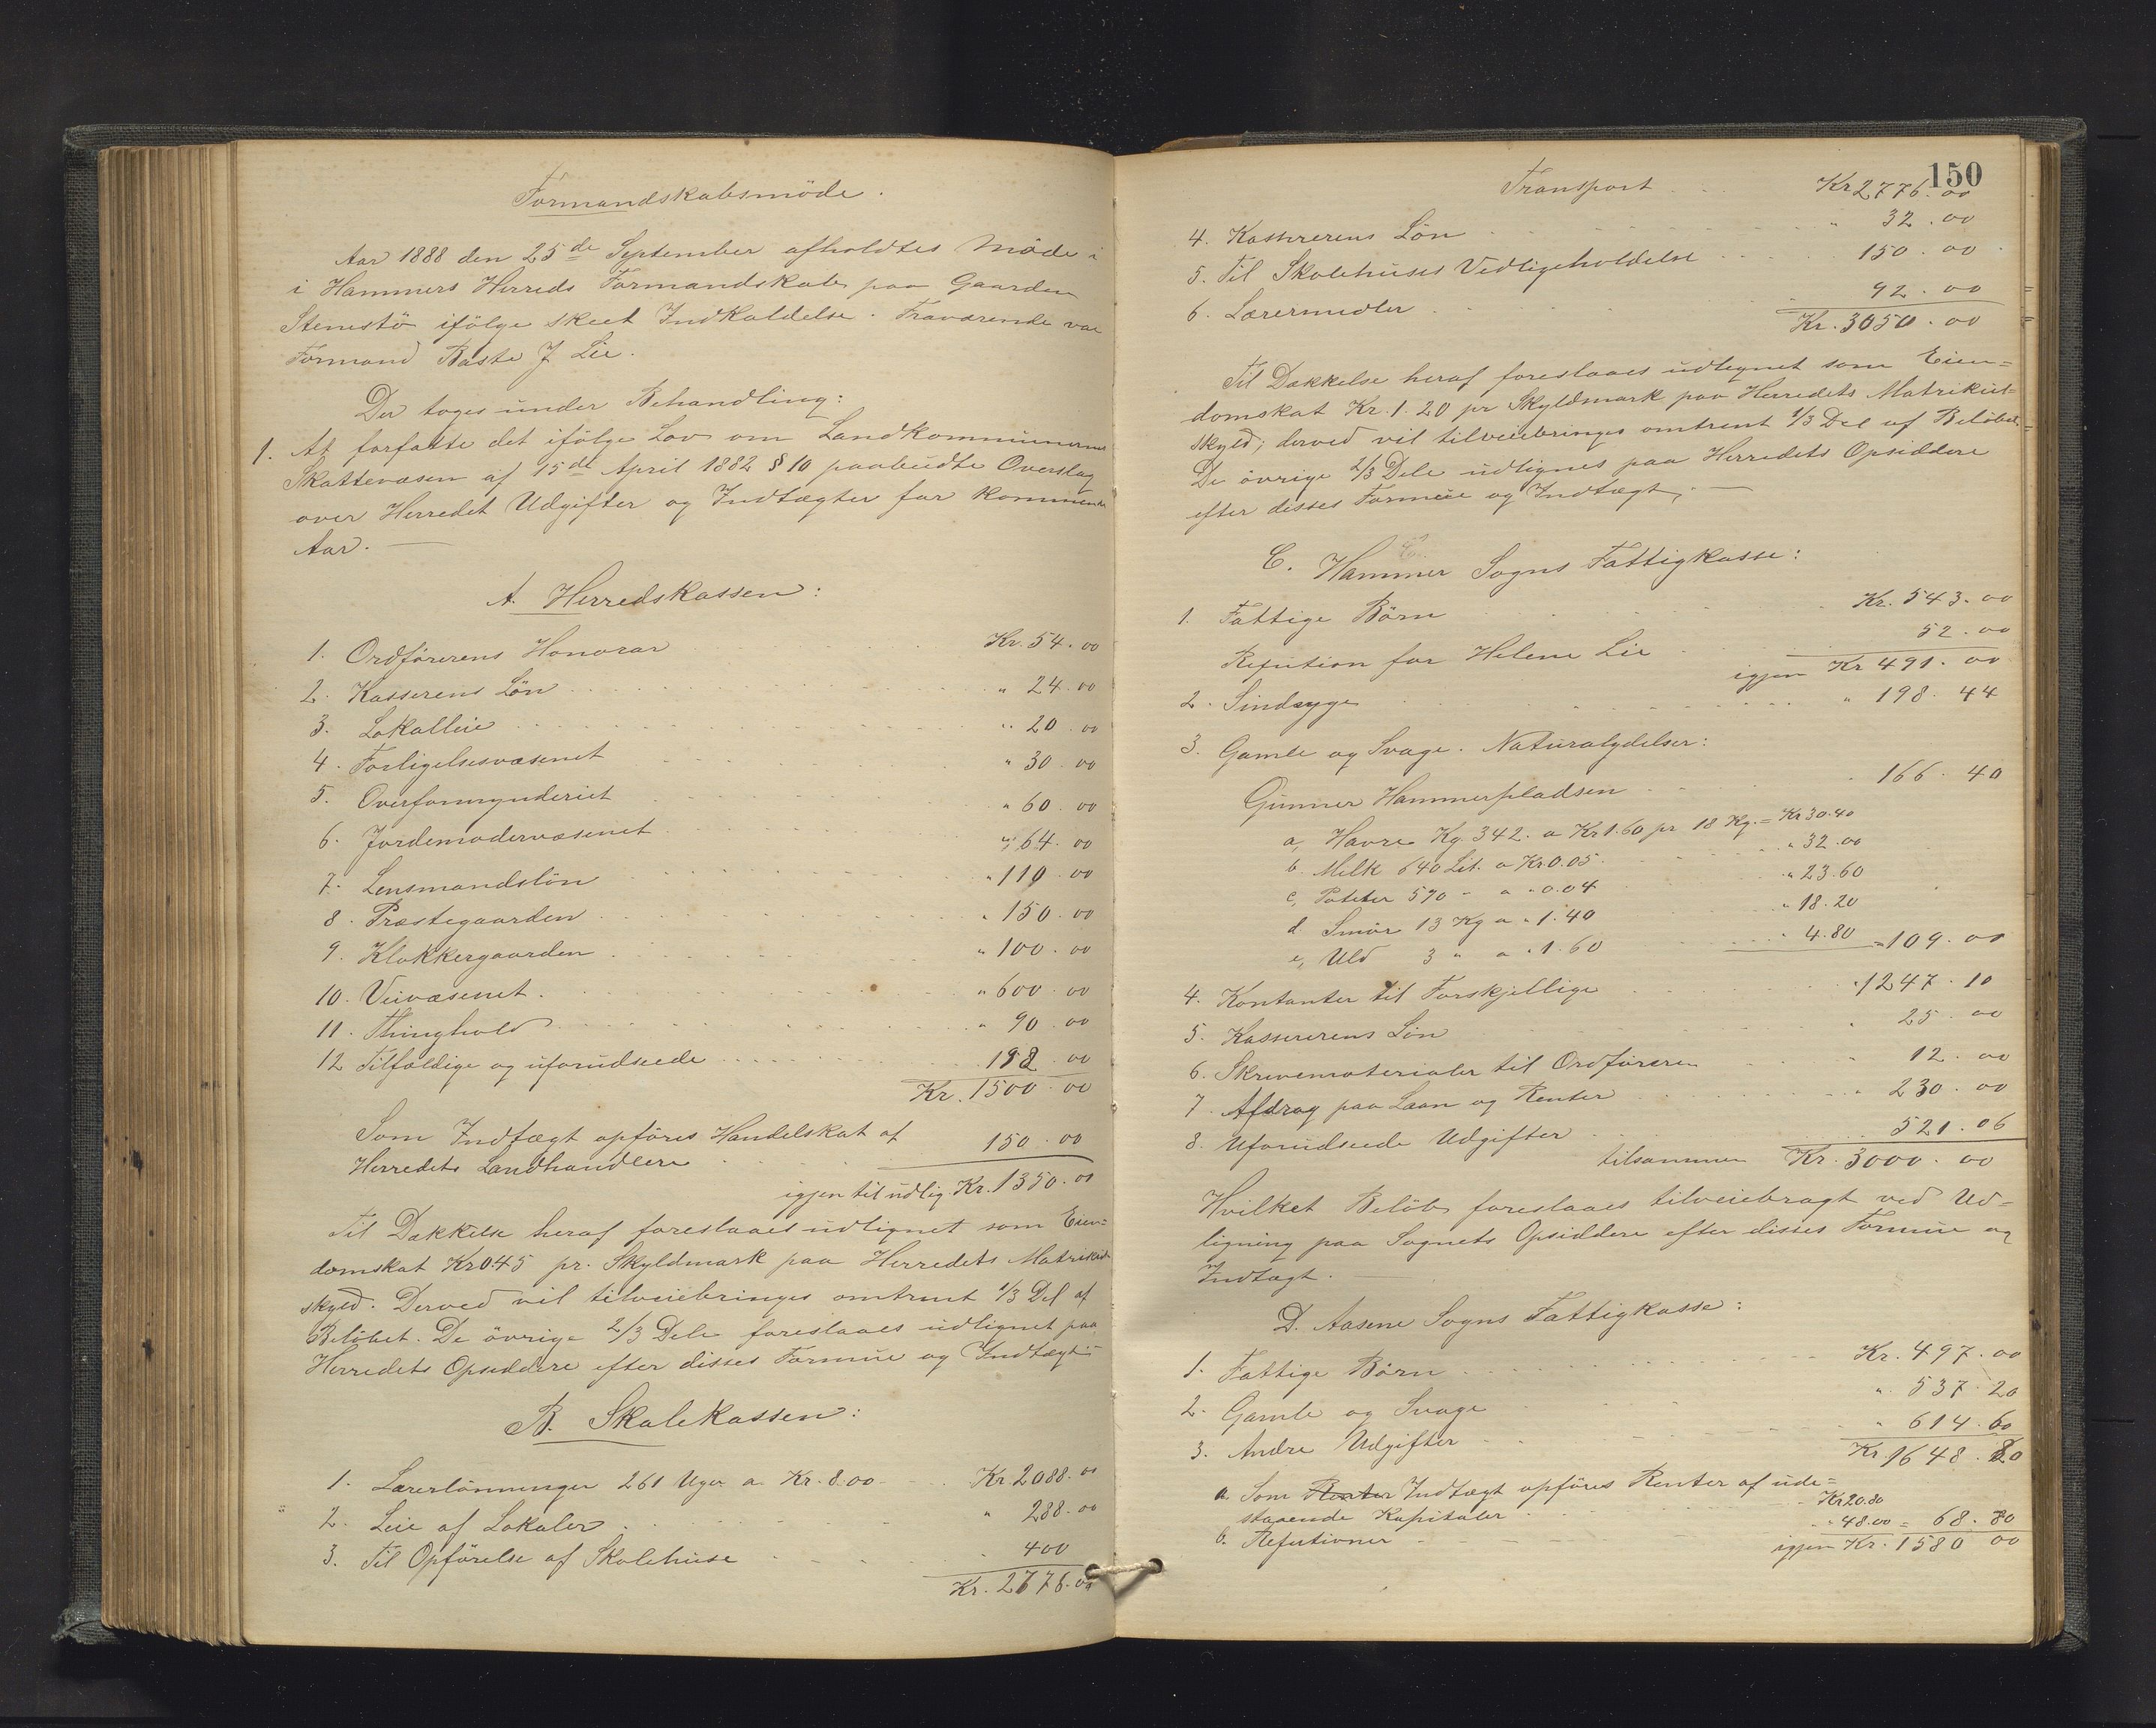 Formandskabsmöde.
Aar 1888 den 25de September afholdtes Möde i
i Hammers Herreds Formandskab paa Gaarden
Stenestö ifölge skeet Indkaldelse. Fraværende var
Formand Baste J. Lie.
Der toges under Behandling:
1. At forfatte det ifölge Lov om Landkommunernes
Skattevæsen af 15de April 1882 § 10 paabudte Overslag
over Herredet Udgifter og Indtægter for kommende
Aar. —
A. Herredskassen:
1. Ordförerens Honorar Kr. 54.00
2. Kasserens Lön " 24.00
3. Lokalleie " 20.00
4. Forligelsesvæsenet " 30.00
5. Overformynderiet " 60.00
6. Jordemodervæsenet " 64.00
7. Lensmandslön " 110.00
8. Præstegaarden " 150.00
9. Klokkergaarden " 100.00
10. Veivæsenet. " 600.00
11. Thinghold " 90.00
12 Tilfældige og uforudseede 198.00
Kr. 1500.00
Som Indtægt opföres Handelskat af
Herredets Landhandlere 150.00
igjen til udlig. Kr. 1350.00
Til Dækkelse heraf foreslaaes udlignet som Eien-
domskat Kr 0.45 pr. Skyldmark paa Herredets Matrikul
skyld. Derved vil tilveiebringes omtrent 1/3 Del af
Belöbet. De övrige 2/3 Dele foreslaaes udlignet paa
Herredets Opsiddere efter disses Formue og Indtægt
B. Skolekassen:
1. Lærerlönninger 261 Uger a Kr. 8.00 Kr. 2088.00
2. Leie af Lokaler " 288.00
3. Til Opförelse af Skolehuse 400
Kr. 2776.00
150
Transport Kr 2776.00
4. Kassererens Lön " 32.00
5. Til Skolehuses Vedligeholdelse 150.00
6. Lærermidler " 92.00
Kr. 3050.00
Til Dækkelse heraf foreslaaes udlignet som Eien=
domskat Kr. 1.20 pr Skyldmark paa Herredets Matrikul=
skyld; derved vil tilveiebringes omtrent 1/3 Del af Belöbet.
De övrige 2/3 Dele udlignes paa Herredets Opsiddere
efter disses Formue og Indtægt, —
C. Hammer Sogns Fattigkasse:
1. Fattige Börn Kr. 543.00
Refution for Helene Lie 52.00
igjen Kr 491.00
2. Sindsyge " 198.44
3. Gamle og Svage. Naturalydelser:
Gunner Hammerpladsen 166.40
a, Havre Kg. 342. a Kr 1.60 pr 18 Kg. = Kr 30.40
b. Melk 640 Lit. a Kr. 0.05. " 32.00
c, Poteter 590 - a " 0.04 " 23.60
d Smör 13 Kg a " 1.40 " 18.20
e, Uld 3 " a " 1.60 " 4.80 = 109.00
4. Kontanter til Forskjellige " 1247.10
5. Kassererens Lön " 25.00
6. Skrivematerialer til Ordföreren " 12.00
7. Afdrag paa Laan og Renter " 230.00
8. Uforudseede Udgifter 521.06
tilsammen Kr. 3000.00
Hvilket Belöb foreslaaes tilveiebragt ved Ud=
ligning paa Sognets Opsiddere efter disses Formue og
Indtægt. —
D. Aasene Sogns Fattigkasse:
1. Fattige Börn Kr. 497.00
2. Gamle og Svage " 537.20
3. Andre Udgifter " 614.60
Kr. 1648.80
a Som Renter Indtægt opföres Renter af ude=
staaende Kapitaler Kr 20.80
b. Refutioner " 48.00 = 68.80
igjen Kr. 1580 00